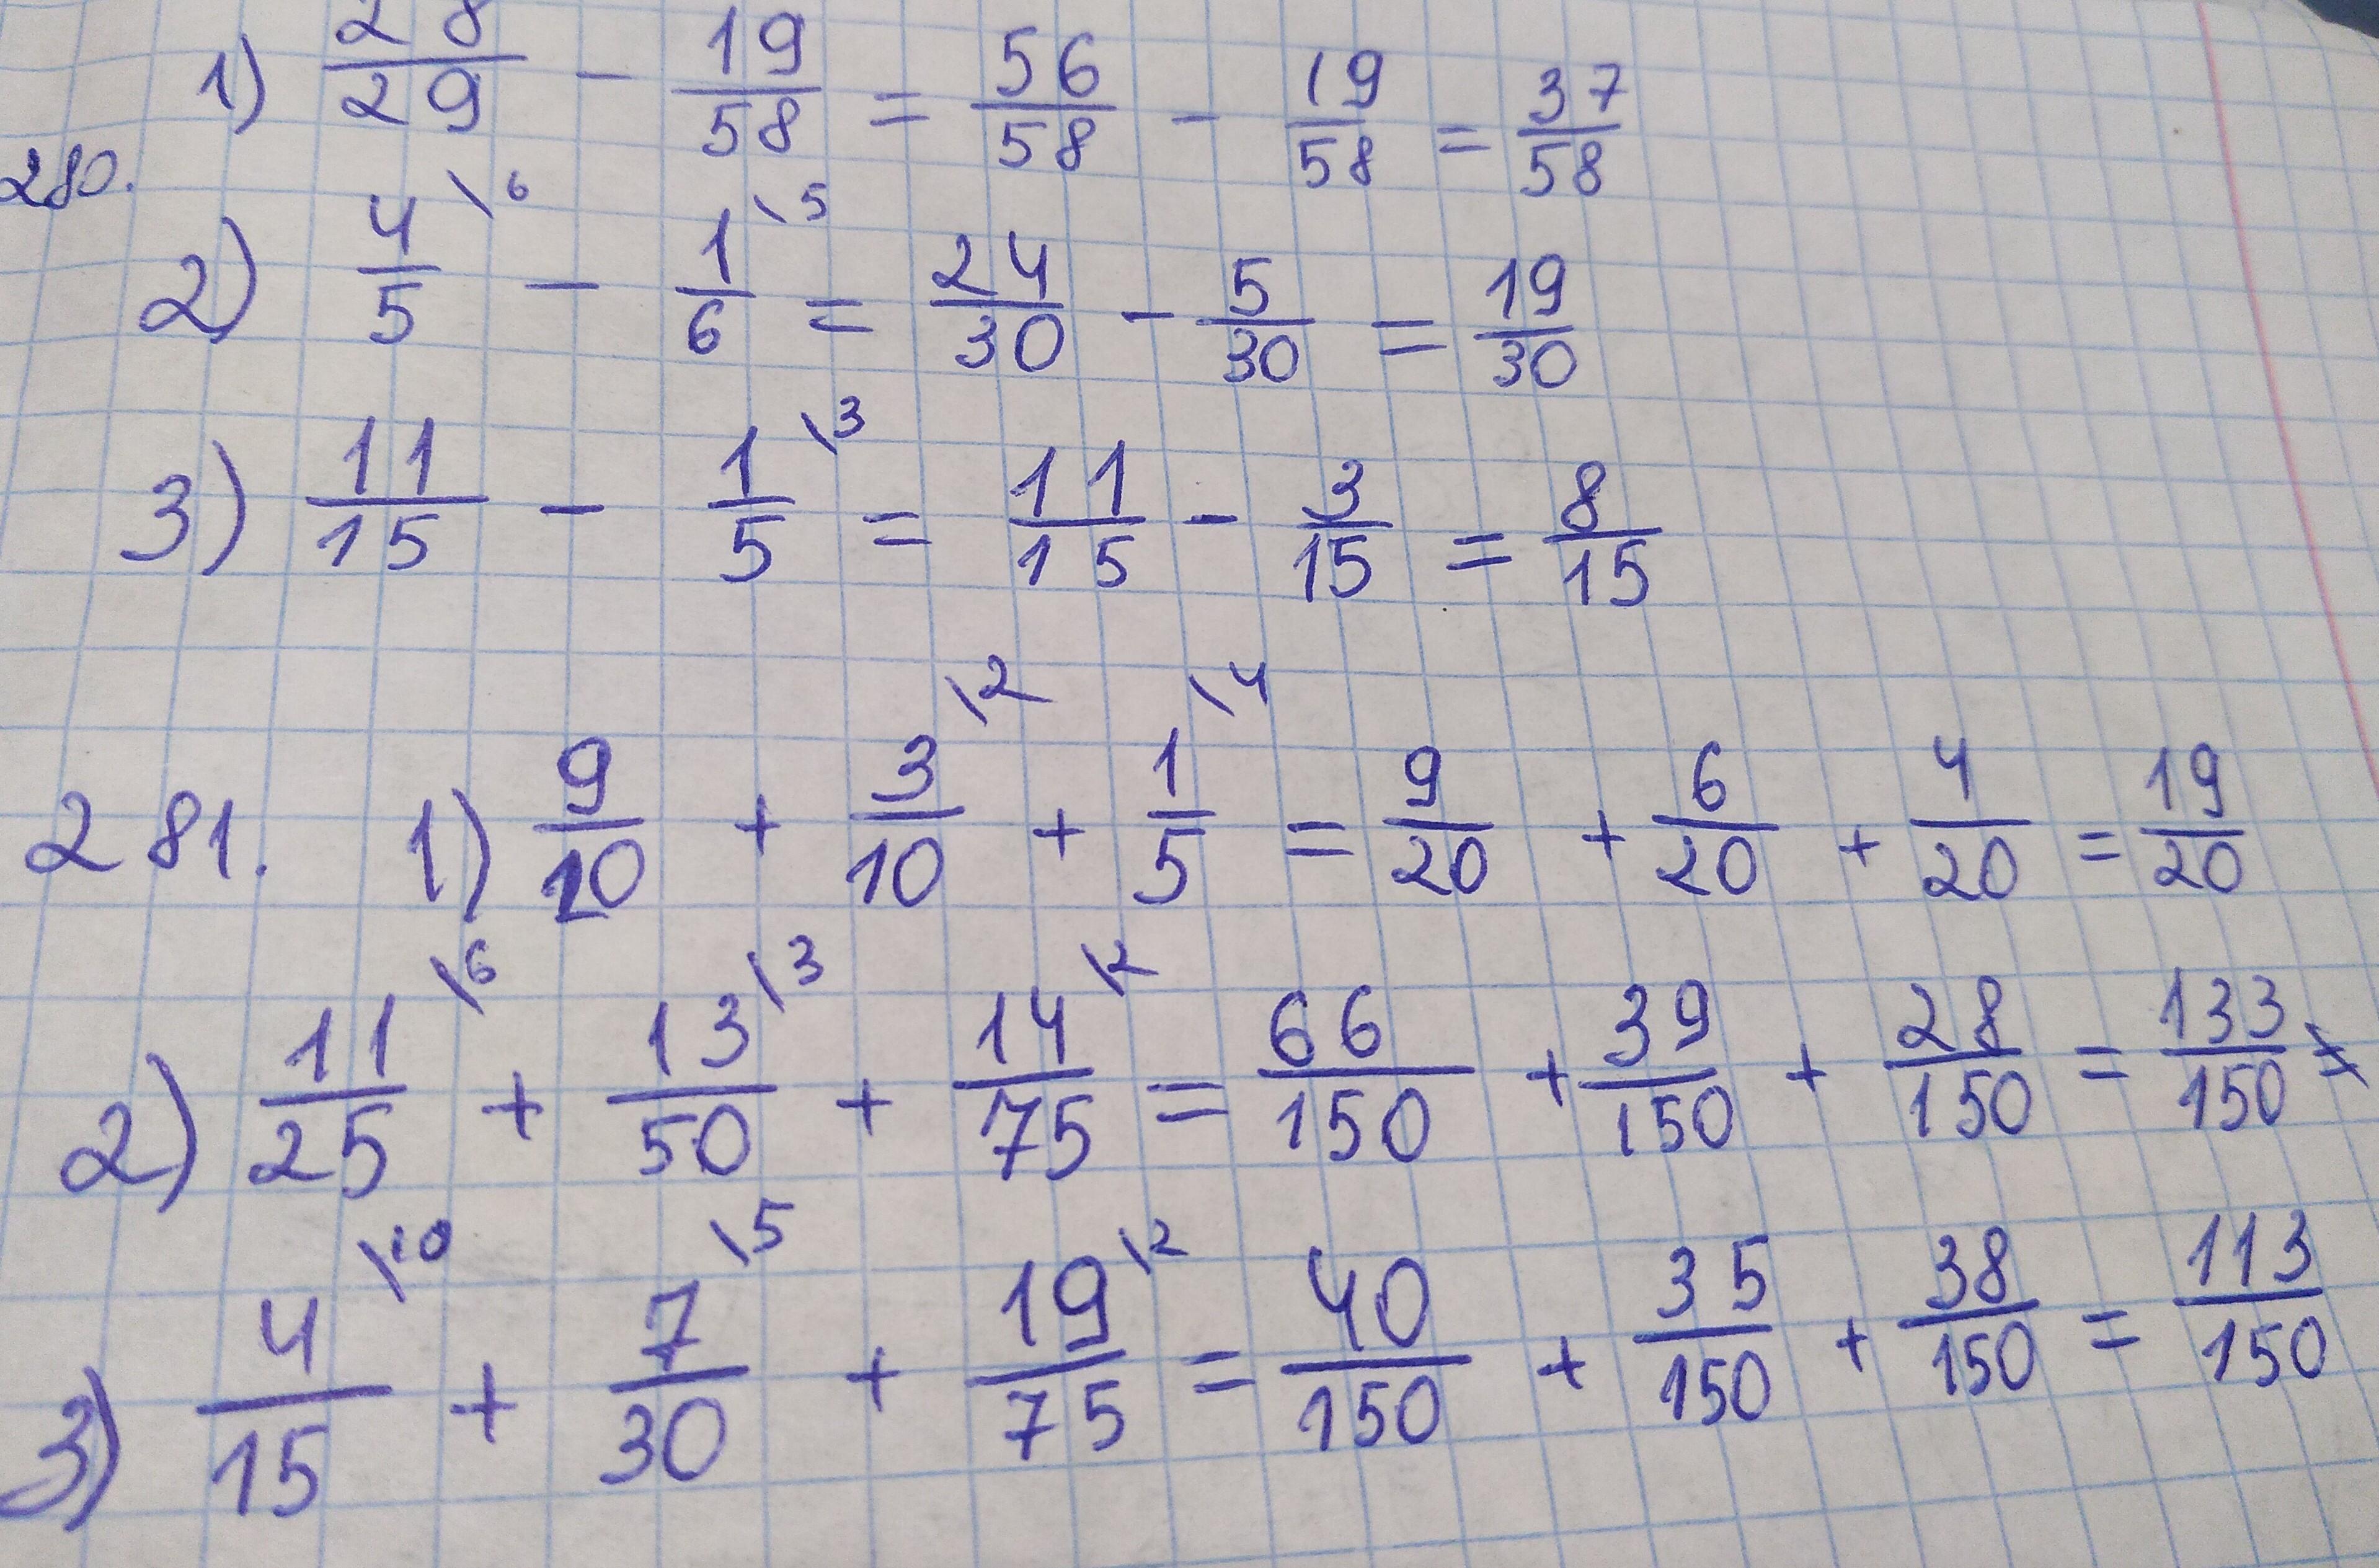 1) 28/29 - 19/58 = 56/58 - 19/58 = 37/58
280.
2) 4/5 \6 - 1/6 \5 = 24/30 - 5/30 = 19/30
3) 11/15 - 1/5 \3 = 11/15 - 3/15 = 8/15
281. 1) 9/10 + 3/10 \2 + 1/5 \4 = 9/20 + 6/20 + 4/20 = 19/20
2) 11/25 \6 + 13/50 \3 + 14/75 \2 = 66/150 + 39/150 + 28/150 = 133/150
3) 4/15 \10 + 7/30 \5 + 19/75 \2 = 40/150 + 35/150 + 38/150 = 113/150